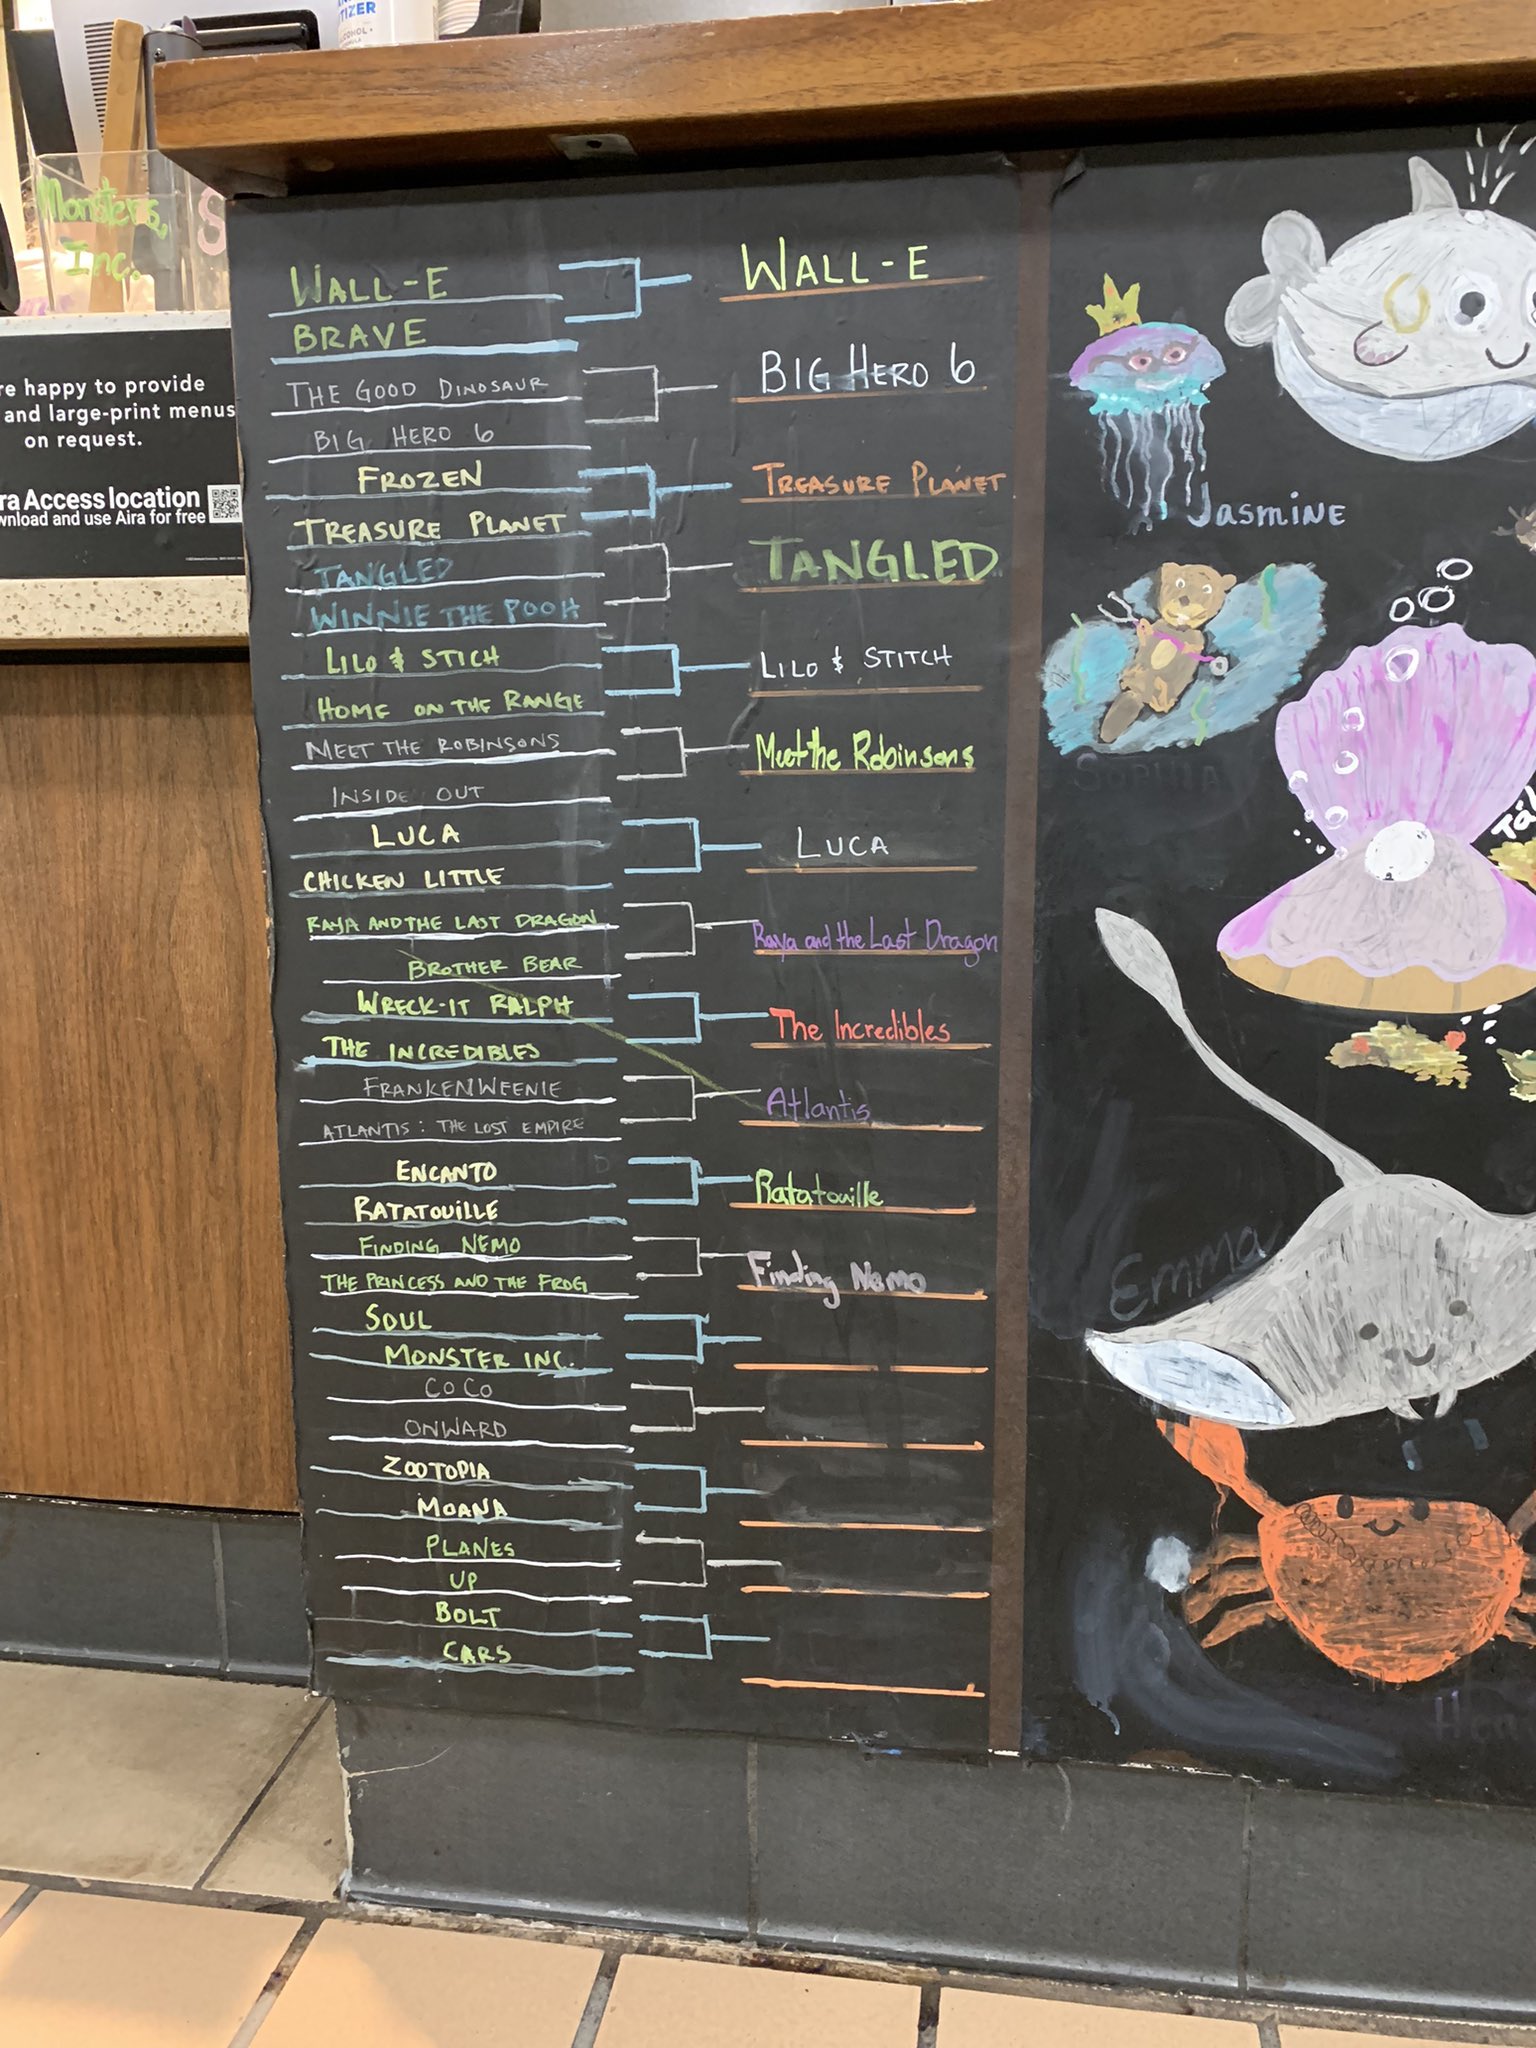 TIZER
ALCOHOL
Monsters,
Inc.
S
re happy to provide
and large-print menus
on request.
ra Access location
wnload and use Aira for free
WALL-E
BRAVE
THE GOOD DINOSAUR
BIG HERO 6
FROZEN
TREASURE PLANET
TANGLED
WINNIE THE POOH
LILO & STICH
HOME ON THE RANGE
MEET THE ROBINSONS
INSIDE OUT
LUCA
CHICKEN LITTLE
RAYA AND THE LAST DRAGON
BROTHER BEAR
WRECK-IT RALPH
THE INCREDIBLES
FRANKENWEENIE
ATLANTIS: THE LOST EMPIRE
ENCANTO
RATATOUILLE
FINDING NEMO
THE PRINCESS AND THE FROG
SOUL
MONSTER INC.
COCO
ONWARD
ZOOTOPIA
MOANA
PLANES
UP
BOLT
CARS
WALL-E
BIG HERO 6
TREASURE PLANET
TANGLED
LILO & STITCH
Meet the Robinsons
LUCA
Raya and the Last Dragon
The Incredibles
Atlantis
Ratatouille
Finding Nemo
Jasmine
SOPHIA
Emma